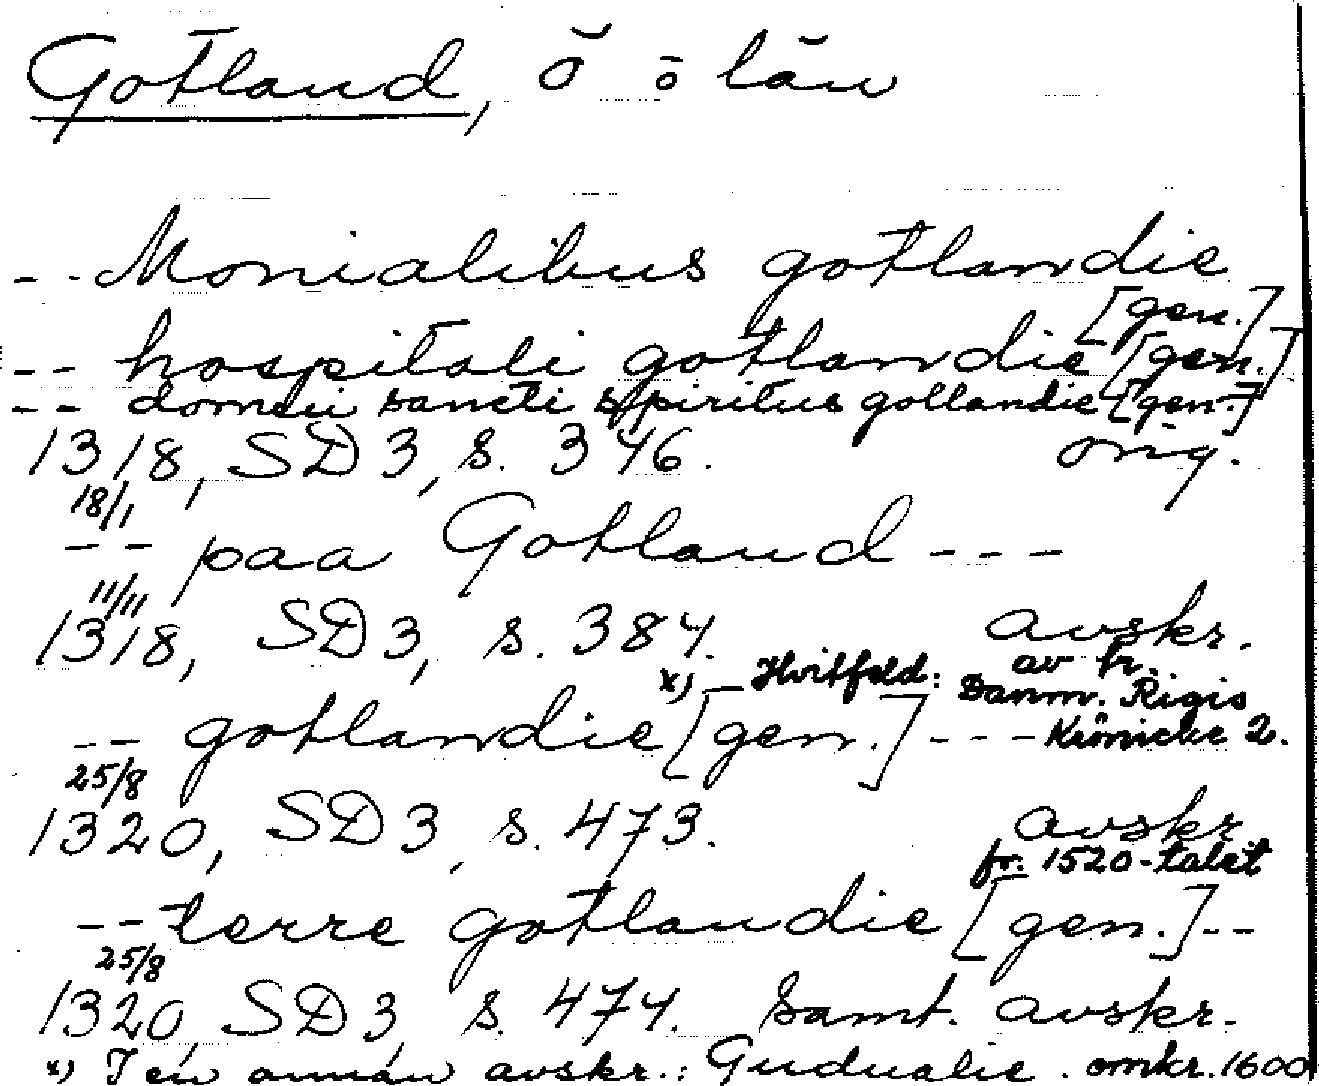 Gotland, ö o län
-- Monialibus gotlandie
[gen.]
-- hospitali gotlandie [gen.]
-- domui sancti spiritus gotlandie [gen.]
1318, SD 3, s. 346. orig.
18/1
-- paa Gotland ---
11/11
1318, SD 3, s. 384. avskr.
x) — Hvitfeld: av tr.
Danm. Rigis
-- gotlandie [gen.] --- Krönicke 2.
25/8
1320, SD 3, s. 473. avskr.
fr. 1520-talet
-- terre gotlandie [gen.] --
25/8
1320, SD 3, s. 474. Samt. avskr.
x) I en annan avskr.: Gudualie. omkr. 1600